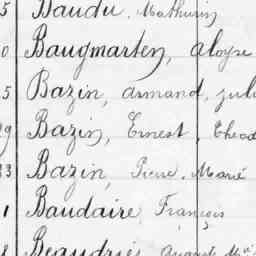 5 Baudu, Mathurin
0 Baugmarten, aloyse
5 Bazin, armand, juli
29 Bazin, Ernest, Theod
33 Bazin, Pierre, Marie
1 Baudaire, François
8 Beaudrie, August, M